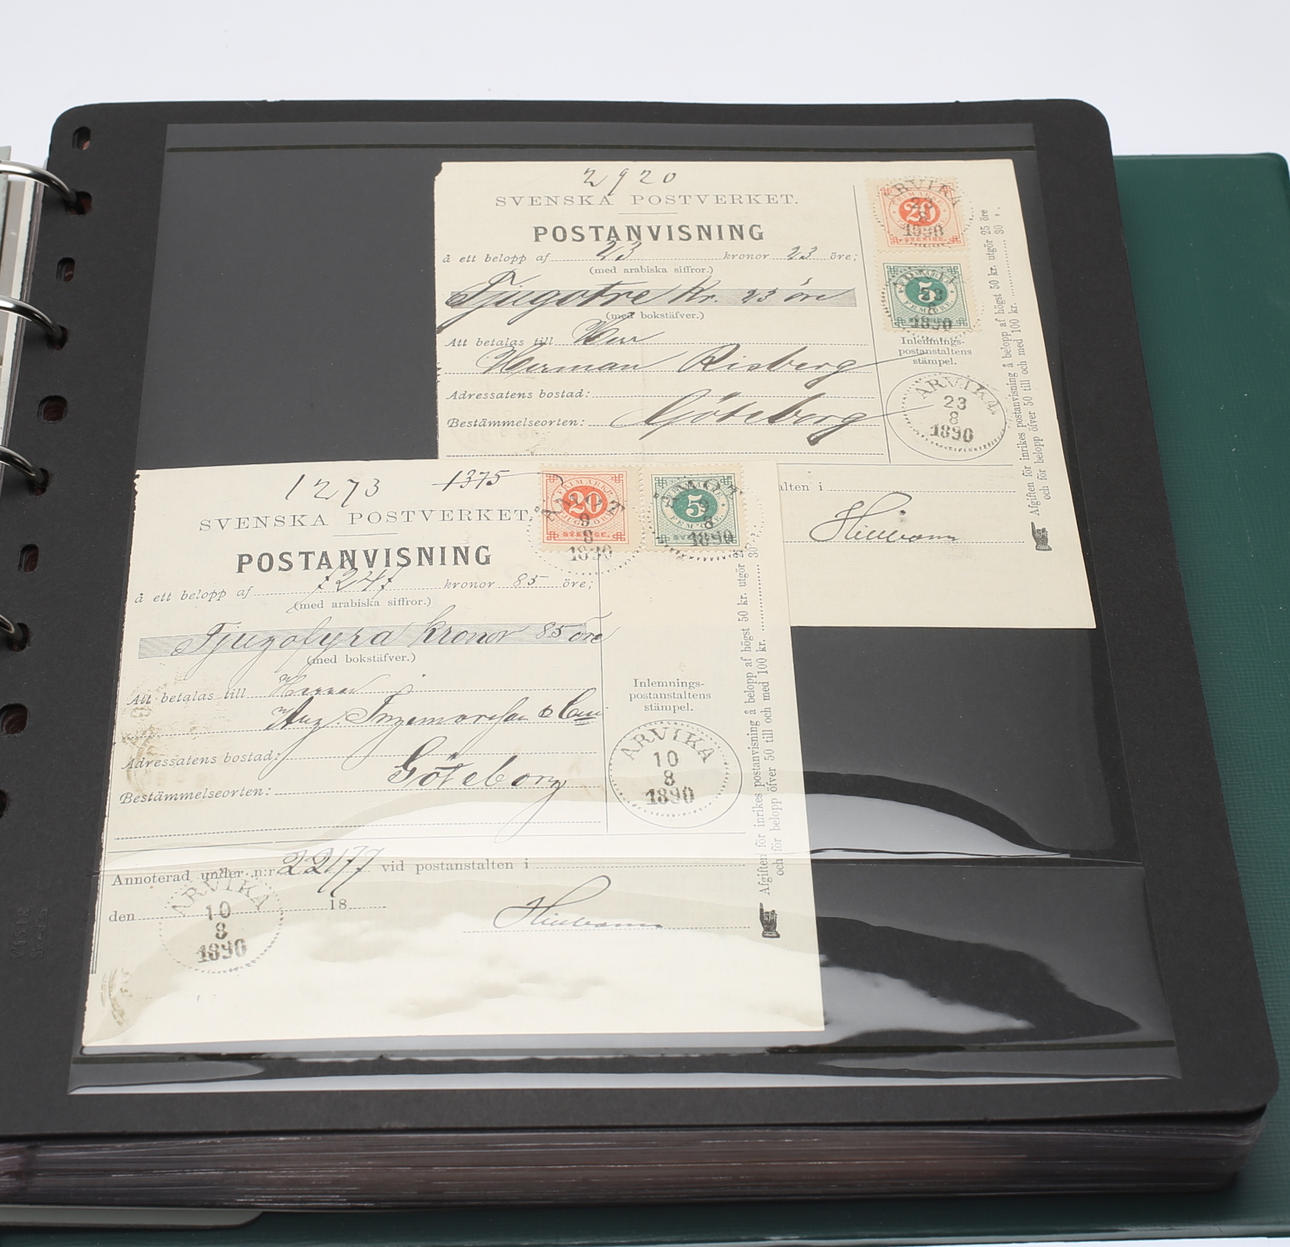 2920
SVENSKA POSTVERKET.
POSTANVISNING
å ett belopp af 23 kronor 23 öre;
(med arabiska siffror.)
Tjugotre Kr. 23 öre
(med bokstäfver.)
Att betalas till Herr
Herman Risberg
Adressatens bostad:
Bestämmelseorten: Göteborg
ARVIKA
20
1890
5
FEM ÖRE
8
1890
Inlemnings-
postanstaltens
stämpel.
ARVIKA
23
8
1890
Afgiften för inrikes postanvisning å belopp af högst 50 kr. utgör 25 öre
och för belopp öfver 50 till och med 100 kr. 30 "
alten i
1273 1375
SVENSKA POSTVERKET.
POSTANVISNING
å ett belopp af 24 kronor 85 öre;
(med arabiska siffror.)
Tjugofyra kronor 85 öre
(med bokstäfver.)
Att betalas till
Aug. Ingemarsson
Adressatens bostad:
Bestämmelseorten: Göteborg
20
TJUGO ÖRE
SVERIGE.
9
8
1890
5
FEM ÖRE
ÅMOT
9
8
1890
Inlemnings-
postanstaltens
stämpel.
ARVIKA
10
8
1890
Afgiften för inrikes postanvisning å belopp af högst 50 kr. utgör
och för belopp öfver 50 till och med 100 kr. 30
Annoterad under n:r 22177 vid postanstalten i
den 18
ARVIKA
10
8
1890